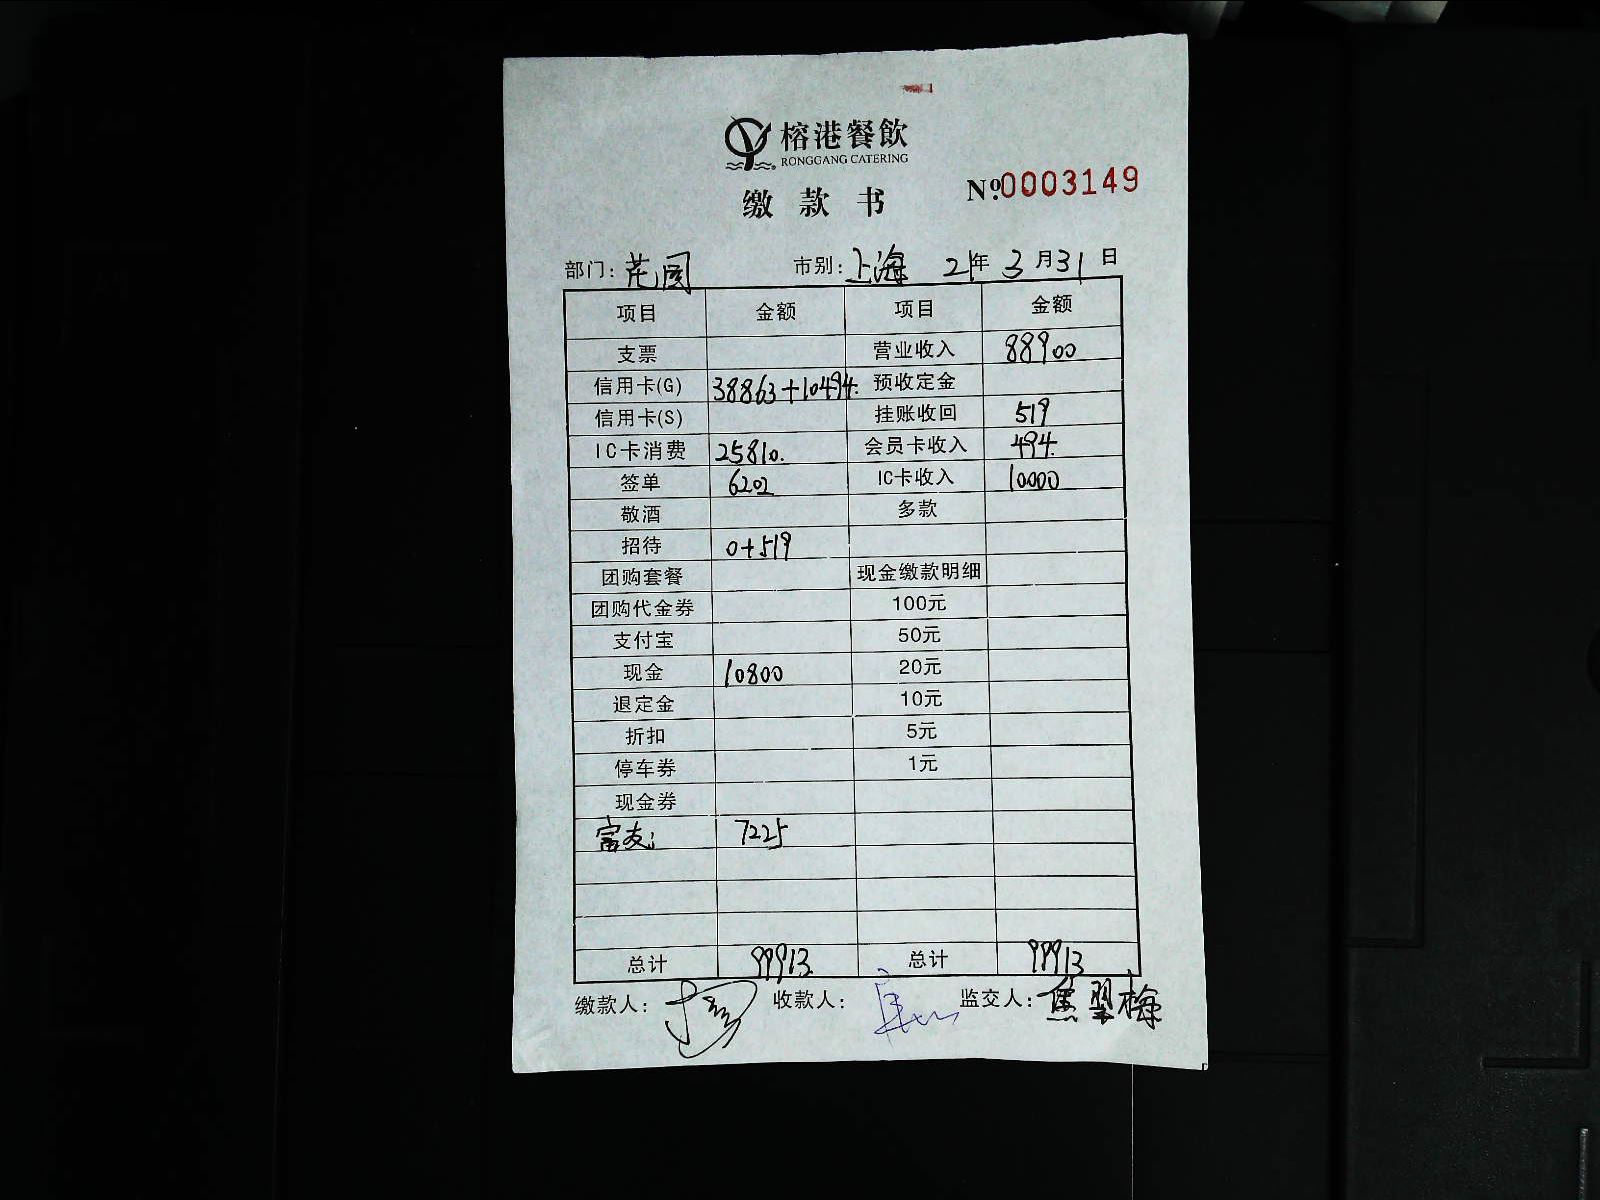 榕港餐飲
RONGGANG CATERING
缴款书
Nº.0003149
部门：花园 市别：上海 21年 3月31日
项目 金额 项目 金额
支票 营业收入 88900
信用卡(G) 38863+10494. 预收定金
信用卡(S) 挂账收回 519
IC卡消费 25810. 会员卡收入 494.
签单 6202 IC卡收入 10000
敬酒 多款
招待 0+519
团购套餐 现金缴款明细
团购代金券 100元
支付宝 50元
现金 10800 20元
退定金 10元
折扣 5元
停车券 1元
现金券
富友 7225
总计 99913 总计 99913
缴款人： 收款人： 监交人：焦翠梅